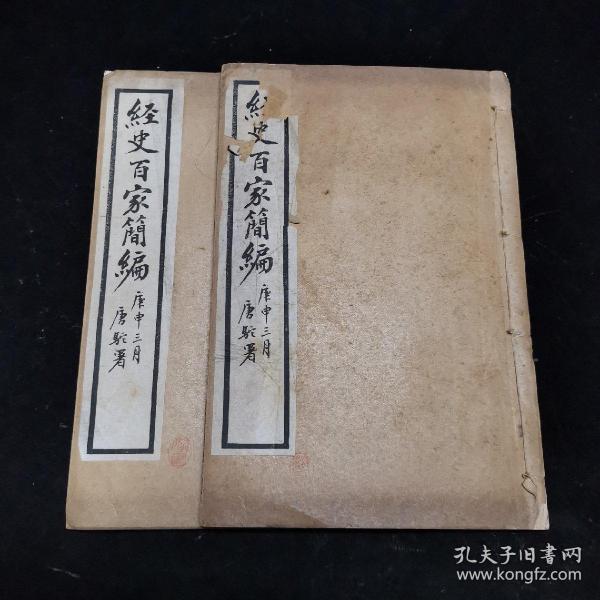 経史百家簡編
庚申三月
唐駝署
史百家簡編
庚申三月
唐駝署
孔夫子旧書网
www.kongfz.com